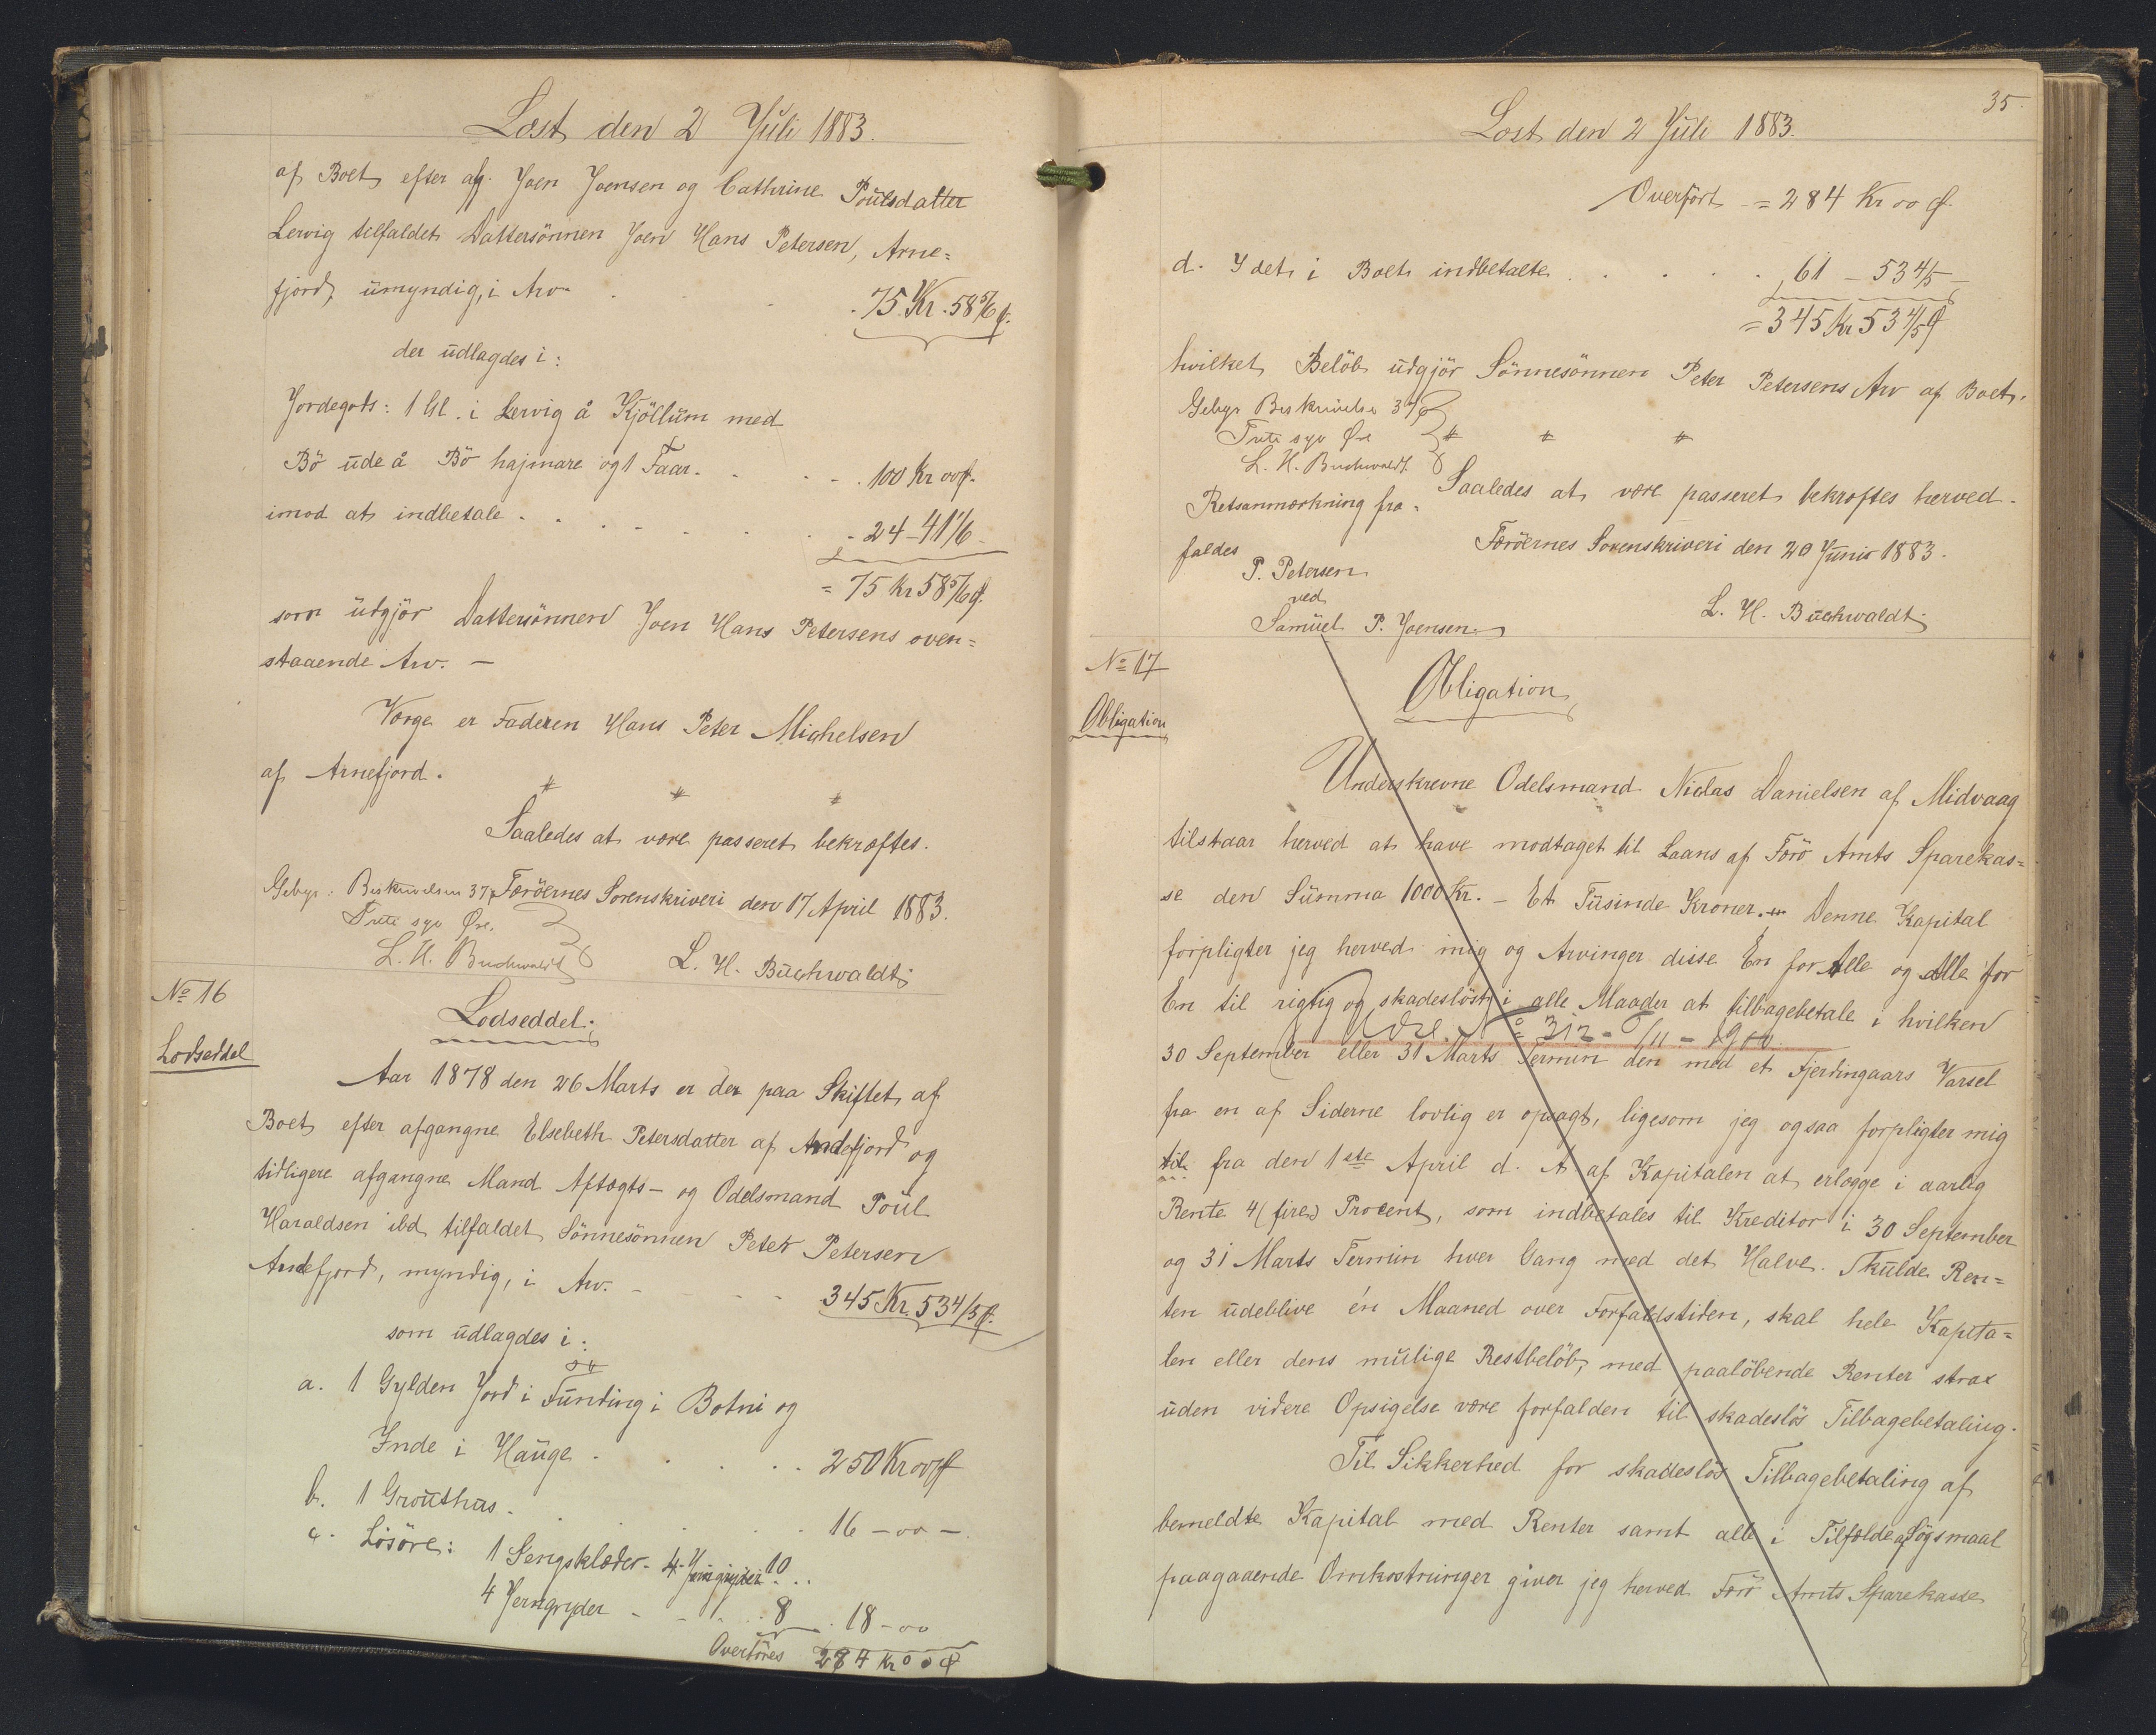 Læst den 2 Juli 1883.
af Boet efter afg. Joen Joensen og Cathrine Poulsdatter
Lervig tilfaldet Dattersönnen Joen Hans Petersen, Arne=
fjord, umyndig, i Arv . . . 75 Kr. 58 5/6 Ø.
der udlagdes i:
Jordegods: 1 Gl. i Lervig å Kjöllum med
Bö ude å Bö hajmare og 1 Faar. . . . 100 Kr 00 Ø.
imod at indbetale . . . . . . 24 - 41 1/6 -
= 75 Kr 58 5/6 Ø.
som udgjör Dattersönnen Joen Hans Petersens oven=
staaende Arv. —
Værge er Faderen Hans Peter Michelsen
af Arnefjord.
Saaledes at være passeret bekræftes.
Gebyr: Beskrivelsen 37 Færöernes Sorenskriveri den 17 April 1883.
Treti syv Øre.
L. H. Buchwaldt L. H. Buchwaldt
No 16
Lodseddel
Lodseddel.
Aar 1878 den 26 Marts er der paa Skiftet af
Boet efter afgangne Elsebeth Petersdatter af Andefjord og
tidligere afgangne Mand Aftægts- og Odelsmand Poul
Haraldsen ibd tilfaldet Sönnesönnen Peter Petersen
Andefjord, myndig, i Arv. . . . . 345 Kr. 53 4/5 Ø.
som udlagdes i:
a. 1 Gylden Jord i Funding i Botni og
Inde i Hauge . . . . 250 Kr 00 Ø
b. 1 Grouthus . . . . . 16 - 00 -
c. Lösöre: 1 Sengsklæder - 4 Jerngryder 10 . .
4 Jerngryder - - - . . 8 . 18 - 00
Overföres 284 Kr 00 Ø
35.
Læst den 2 Juli 1883.
Overfört = 284 Kr 00 Ø.
d. Ydet i Boet indbetalte . . . . 61 - 53 4/5 -
= 345 Kr 53 4/5 Ø
hvilket Belöb udgjör Sönnesönnen Peter Petersens Arv af Boet.
Gebyr Beskrivelse 37 Ø
Treti syv Øre
L. H. Buchwaldt
Saaledes at være passeret bekræftes herved.
Retsanmærkning fra=
faldes
Færöernes Sorenskriveri den 20 Juni 1883.
P. Petersen
ved
Samuel P. Joensen
L. H. Buchwaldt
No 17
Obligation
Obligation
Underskrevne Odelsmand Niclas Danielsen af Midvaag
tilstaar herved at have modtaget til Laans af Færö Amts Sparekas=
se den Summa 1000 Kr. - Et Tusinde Kroner. - Denne Kapital
forpligter jeg herved mig og Arvinger disse En for Alle og Alle for
En til rigtig og skadeslöst i alle Maader at tilbagebetale i hvilken
No 312 - /11 - 1900.
30 September eller 31 Marts Termin den med et Fjerdingaars Varsel
fra en af Siderne lovlig er opsagt, ligesom jeg ogsaa forpligter mig
til fra den 1ste April d. A af Kapitalen at erlægge i aarlig
Rente 4 (fire) Procent, som indbetales til Kreditor i 30 September
og 31 Marts Termin hver Gang med det Halve. Skulde Ren=
ten udeblive én Maaned over Forfaldstiden, skal hele Kapita=
len eller dens mulige Restbelöb, med paalöbende Renter strax
uden videre Opsigelse være forfalden til skadeslös Tilbagebetaling.
Til Sikkerhed for skadeslös Tilbagebetaling af
bemeldte Kapital med Renter samt alle i Tilfælde af Sögsmaal
paagaaende Omkostninger giver jeg herved Færö Amts Sparekasse